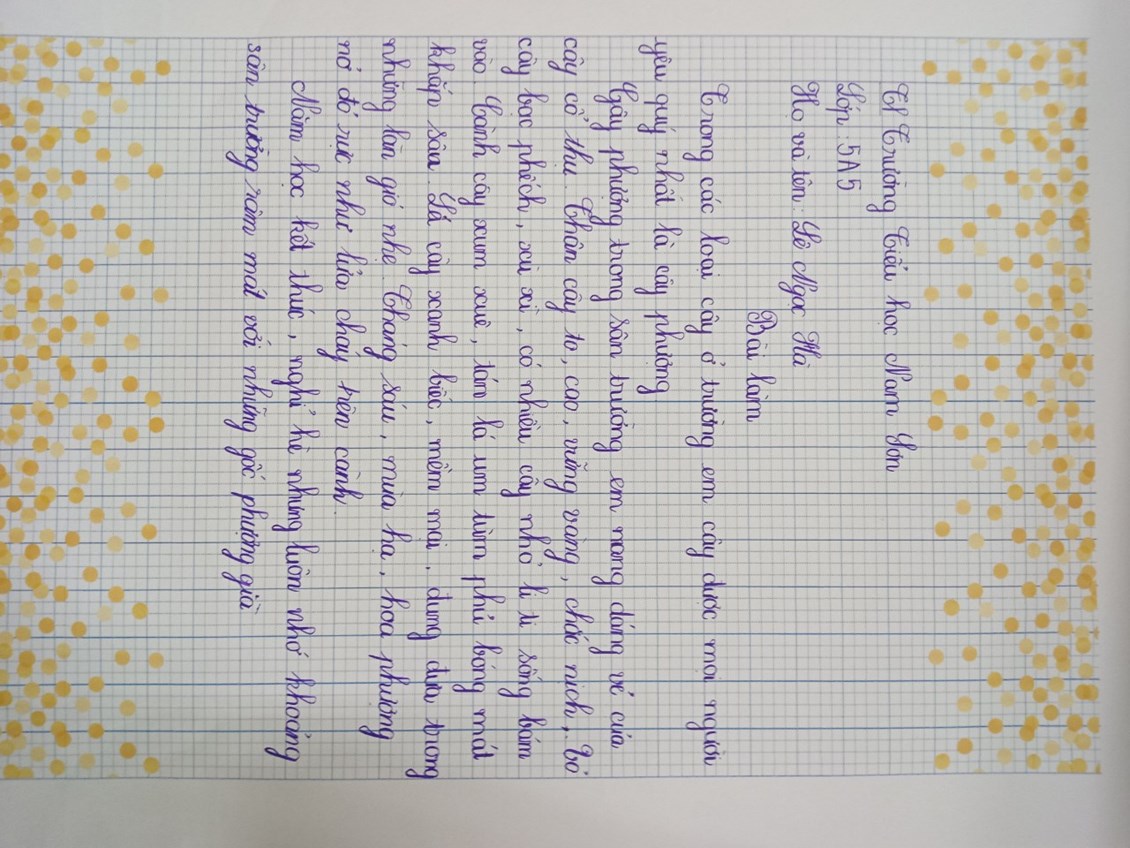 Trường Tiểu học Nam Sơn
Lớp: 5A5
Họ và tên: Lê Ngọc Hà
Bài làm
Trong các loại cây ở trường em cây được mọi người
yêu quý nhất là cây phượng
Cây phượng trong sân trường em mang dáng vẻ của
cây cổ thụ. Thân cây to, cao, vững vàng, chắc nịch, Vỏ
cây bạc phếch, xù xì, có nhiều cây nhỏ li ti sống bám
vào. Cành cây xum xuê, tán lá um tùm phủ bóng mát
khắp sân. Lá cây xanh biếc, mềm mại, đung đưa trong
những làn gió nhẹ. Tháng sáu, mùa hạ, hoa phượng
nở đỏ rực như lửa cháy trên cành.
Năm học kết thúc, nghỉ hè nhưng luôn nhớ khoảng
sân trường râm mát với những gốc phượng già